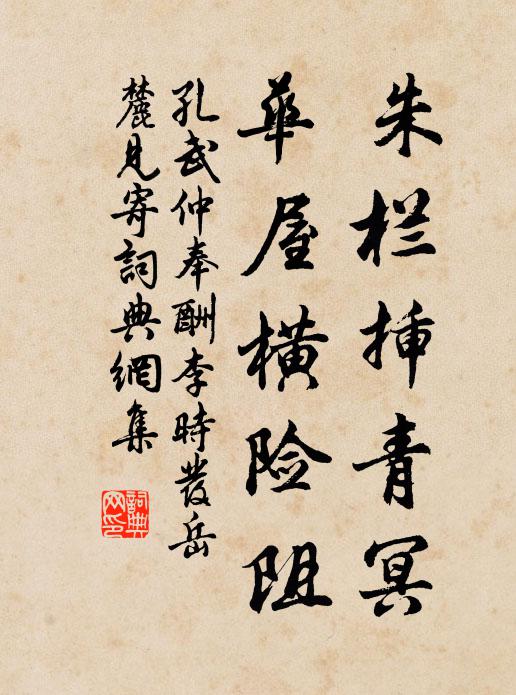 朱栏插青冥
華屋橫险阻
孔武仲奉酬李時發岳
麓見寄詞典網集
詞典网印